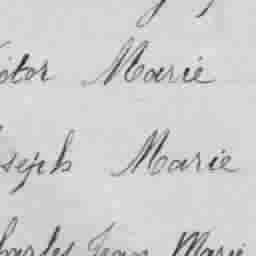 ictor Marie
oseph Marie
harles Jean Marie